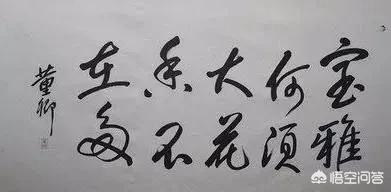 室雅
何须
大花
香不
在多
董卿
悟空问答